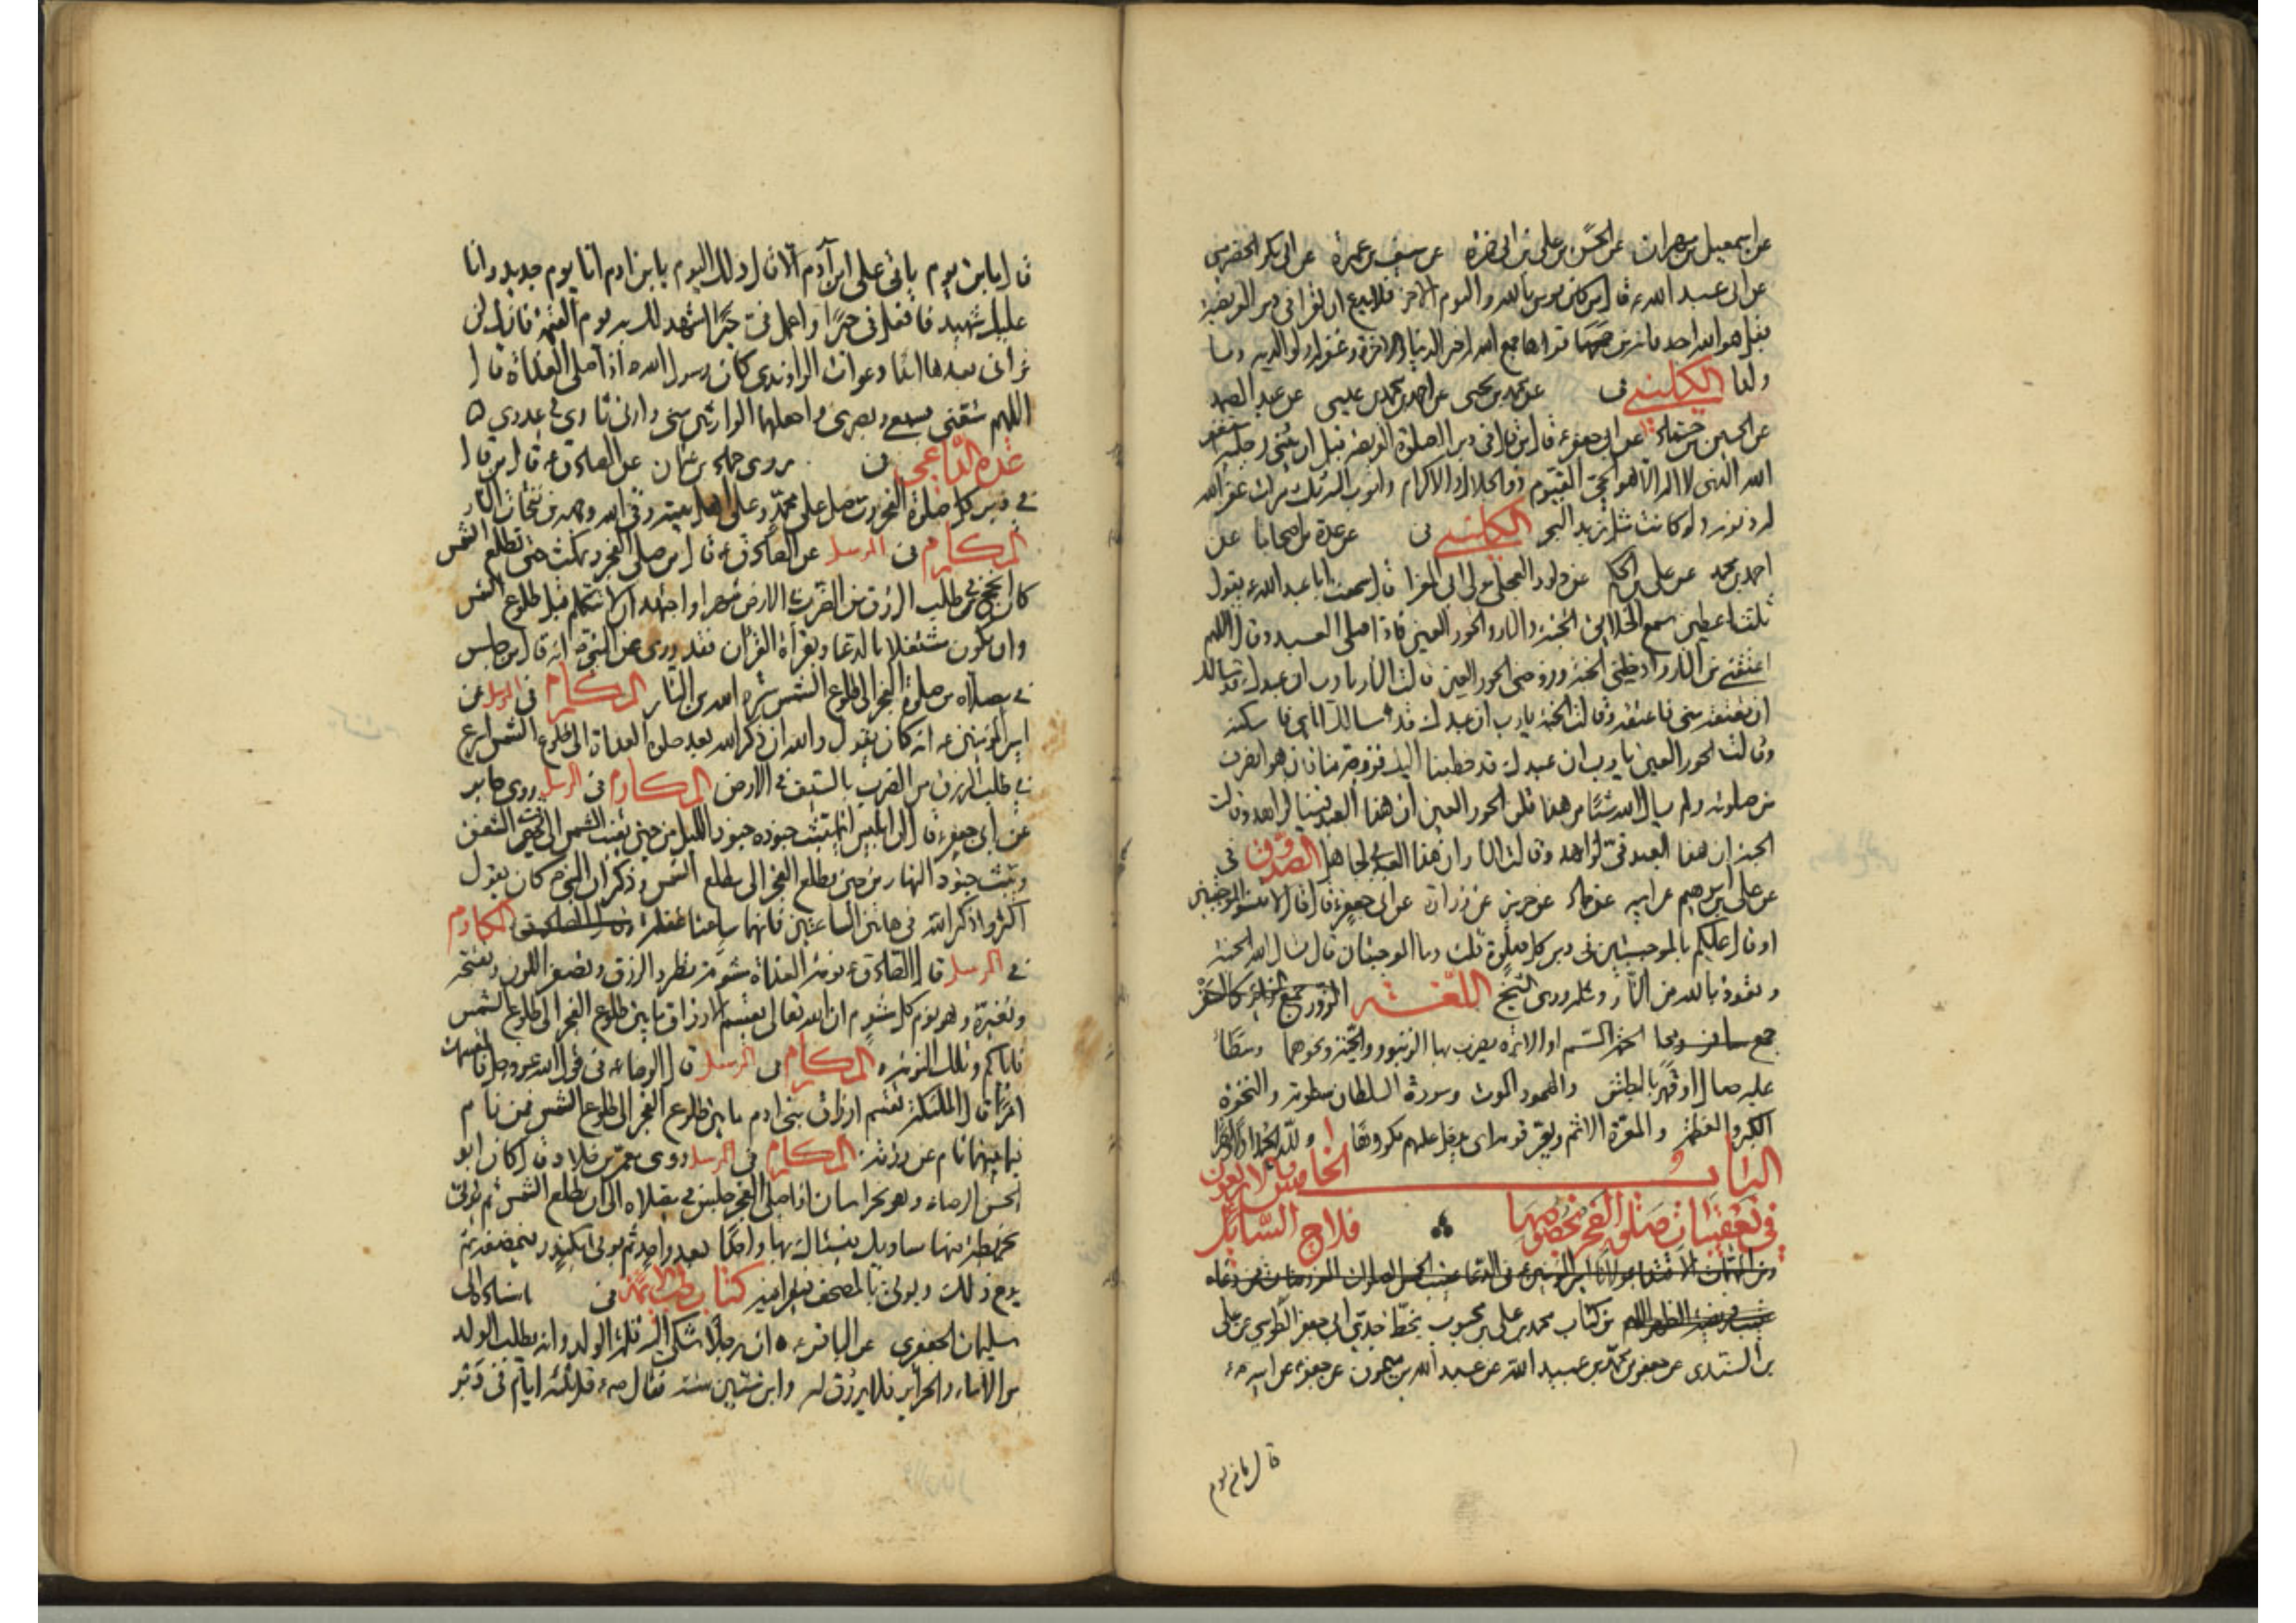 عن اسمعيل بن مهران عن الحسن بن علي بن ابي حمزة عن سيف بن عميرة عن ابي بكر الحضرمي
عن ابي عبد الله ع قال من كان يومن بالله واليوم الاخر فلا يدع ان يقرا في دبر الفريضة
بقل هو الله احد فانه من قراها جمع الله له خير الدنيا والاخرة وغفر له ولوالديه وما
ولدا الكليني في عن محمد بن يحيى عن احمد بن محمد بن عيسى عن عبد الصمد
عن الحسين بن حماد عن ابي جعفر ع قال من قال في دبر الصلوة الفريضة قبل ان يثني رجليه استغفر
الله الذي لا اله الا هو الحي القيوم ذو الجلال والاكرام واتوب اليه ثلث مرات غفر الله
له ذنوبه ولو كانت مثل زبد البحر الكليني في عن عدة من اصحابنا عن
احمد بن محمد عن علي بن الحكم عن داود العجلي مولى ابي المغرا قال سمعت ابا عبد الله ع يقول
ثلث اعطين سمع الخلايق الجنة والنار والحور العين فاذا صلى العبد وقال اللهم
اعتقني من النار وادخلني الجنة وزوجني الحور العين قالت النار يا رب ان عبدك قد سالك
ان تعتقه مني فاعتقه وقالت الجنة يا رب ان عبدك قد سالك اياي فاسكنه
وقالت الحور العين يا رب ان عبدك قد خطبنا اليك فزوجه منا فان هو انصرف
من صلوته ولم يسال الله شيئا من هذا قلن الحور العين ان هذا العبد فينا لزاهد وقالت
الجنة ان هذا العبد في لزاهد وقالت النار ان هذا العبد بي لجاهل الصدوق في
عن علي بن ابرهيم عن ابيه عن حماد عن حريز عن زرارة عن ابي جعفر ع قال قال لا تنسوا الموجبتين
او قال عليكم بالموجبتين في دبر كل صلوة قلت وما الموجبتان قال تسال الله الجنة
وتعوذ بالله من النار ومثله روى الشيخ اللغة
عليه صال او قهر بالبطش والهمود الموت وسورة السلطان سطوته والنخوة
الكبر والعظمة والمعرة الاثم
الباب الخامس والاربعون
في تعقيبات صلوة الفجر بخصوصها فلاح السائل
من كتاب محمد بن علي بن محبوب بخط جدي ابي جعفر الطوسي عن علي
بن السندي عن جعفر بن محمد بن عبيد الله عن عبد الله بن ميمون عن جعفر عن ابيه ع
قال ما من يوم
قال ما من يوم ياتي على ابن آدم الا قال ذلك اليوم يا بن ادم انا يوم جديد وانا
عليك شهيد فافعل في خيرا واعمل في خيرا اشهد لك به يوم القيمة فانك لن
تراني بعدها ابدا دعوات الراوندي كان رسول الله ص اذا صلى الغداة قال
اللهم متعني بسمعي وبصري واجعلهما الوارثين مني وارني ثاري في عدوي
عدة الداعي في روى حماد بن عثمان عن الصادق ع قال من قال
في دبر كل صلوة الفجر رب صل على محمد وعلى اهل بيته وقى الله وجهه من نفحات النار
المكارم في المرسل عن الصادق ع قال من صلى الفجر ومكث حتى تطلع الشمس
كان انجح في طلب الرزق من الضرب في الارض شهرا واجتهد ان لا تتكلم قبل طلوع الشمس
وان تكون مشتغلا بالدعا وبقراة القران فقد روي عن النبي ص انه قال من جلس
في مصلاه من صلوة الفجر الى طلوع الشمس ستره الله من النار المكارم في المرسل عن
امير المؤمنين ع انه كان يقول والله ان ذكر الله بعد صلوة الغداة الى طلوع الشمس اسرع
في طلب الرزق من الضرب بالسيف في الارض المكارم في المرسل روى جابر
عن ابي جعفر ع قال ان ابليس انما يبث جنوده جنود الليل من حين تغيب الشمس الى مغيب الشفق
ويبث جنود النهار من حين يطلع الفجر الى مطلع الشمس وذكر ان النبي ص كان يقول
اكثروا ذكر الله في هاتين الساعتين فانهما ساعتا غفلة المكارم
في المرسل قال الصادق ع نومة الغداة شومة تطرد الرزق وتصفر اللون وتقبحه
وتغيره وهو نوم كل مشوم ان الله تعالى يقسم الارزاق ما بين طلوع الفجر الى طلوع الشمس
فاياكم وتلك النومة المكارم في المرسل قال الرضا ع في قول الله عز وجل فالمقسمات
امرا قال الملئكة تقسم ارزاق بني ادم ما بين طلوع الفجر الى طلوع الشمس فمن نام
فيما بينهما نام عن رزقه المكارم في المرسل روى معمر بن خلاد قال كان ابو
الحسن الرضا ع وهو بخراسان اذا صلى الفجر جلس في مصلاه الى ان تطلع الشمس ثم يوتى
بخريطة فيها مساويك فيستاك بها واحدا بعد واحد ثم يوتى بكندر فيمضغه ثم
يدع ذلك ويوتى بالمصحف فيقرا فيه كتاب طب الائمة في باسناده الى
سليمان الجعفري عن الباقر ع ان رجلا شكى اليه قلة الولد وانه يطلب الولد
من الاماء والحراير فلا يرزق له وابن ستين سنة فقال ع قل ثلثة ايام في دبر